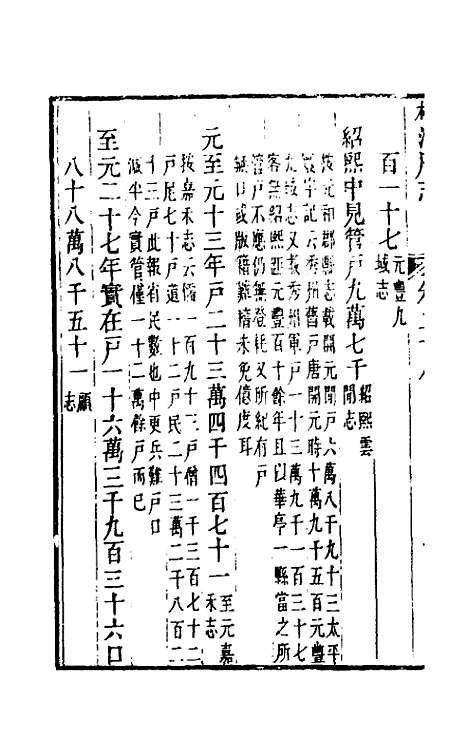 百一十七元豐九
域志
紹熙中見管戸九萬七千紹熙雲
間志
按元和郡縣志載開元間戸六萬八千九十三太平
寰宇記云秀州舊戸唐開元時十萬九千五百元豐
九域志又載秀州軍戸一十三萬九千一百三十七
客無紹熙距元豐百十餘年且以華亭一縣當之所
管戸不應仍無登耗又所紀有戸
無口或版籍叢積未免億度耳
元至元十三年戸二十三萬四千四百七十一至元嘉
禾志
按嘉禾志云儒一百九十三戸僧一千三百七十二
戸尼七十戸道一十二戸民二十三萬二千八百二
十三戸此報省民數也中更兵難戸口
減半今實管僅一十二萬餘戸而已
至元二十七年實在戸一十六萬三千九百三十六口
八十八萬八千五十一顧
志